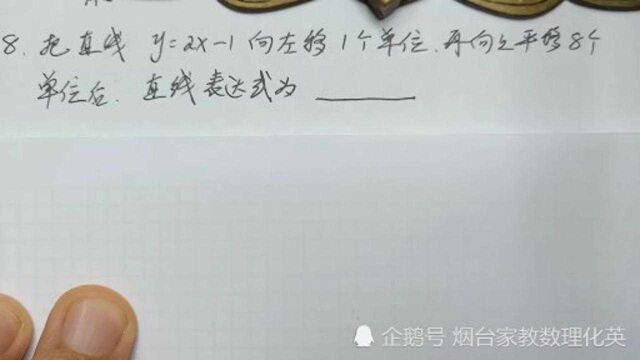 8. 把直线 y=2x-1 向左移1个单位.再向上平移8个
单位后. 直线表达式为
企鹅号 烟台家教数理化英